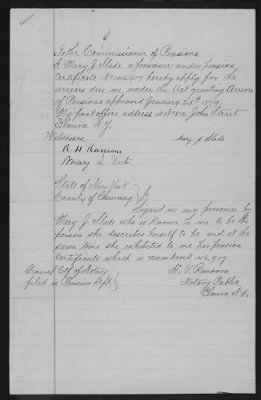 To the Commissioner of Pensions
I Mary J. Slade a pensioner under pension
Certificate No 146,917 hereby apply for the
arrears due me under the Act granting Arrears
of Pensions approved January 25th 1879.
My post office address is No 82 John Street
Elmira N.Y.
Witnesses
Mary J Slade
R. H. Ransom
State of New York
County of Chemung
Signed in my presence by
Mary J. Slade who is known to me to be the
person she describes herself to be and at the
same time she exhibited to me her pension
Certificate which is numbered 146,917.
General Ctf of Notary
filed in Pension Dept.
Ransom
Notary Public
Elmira N.Y.